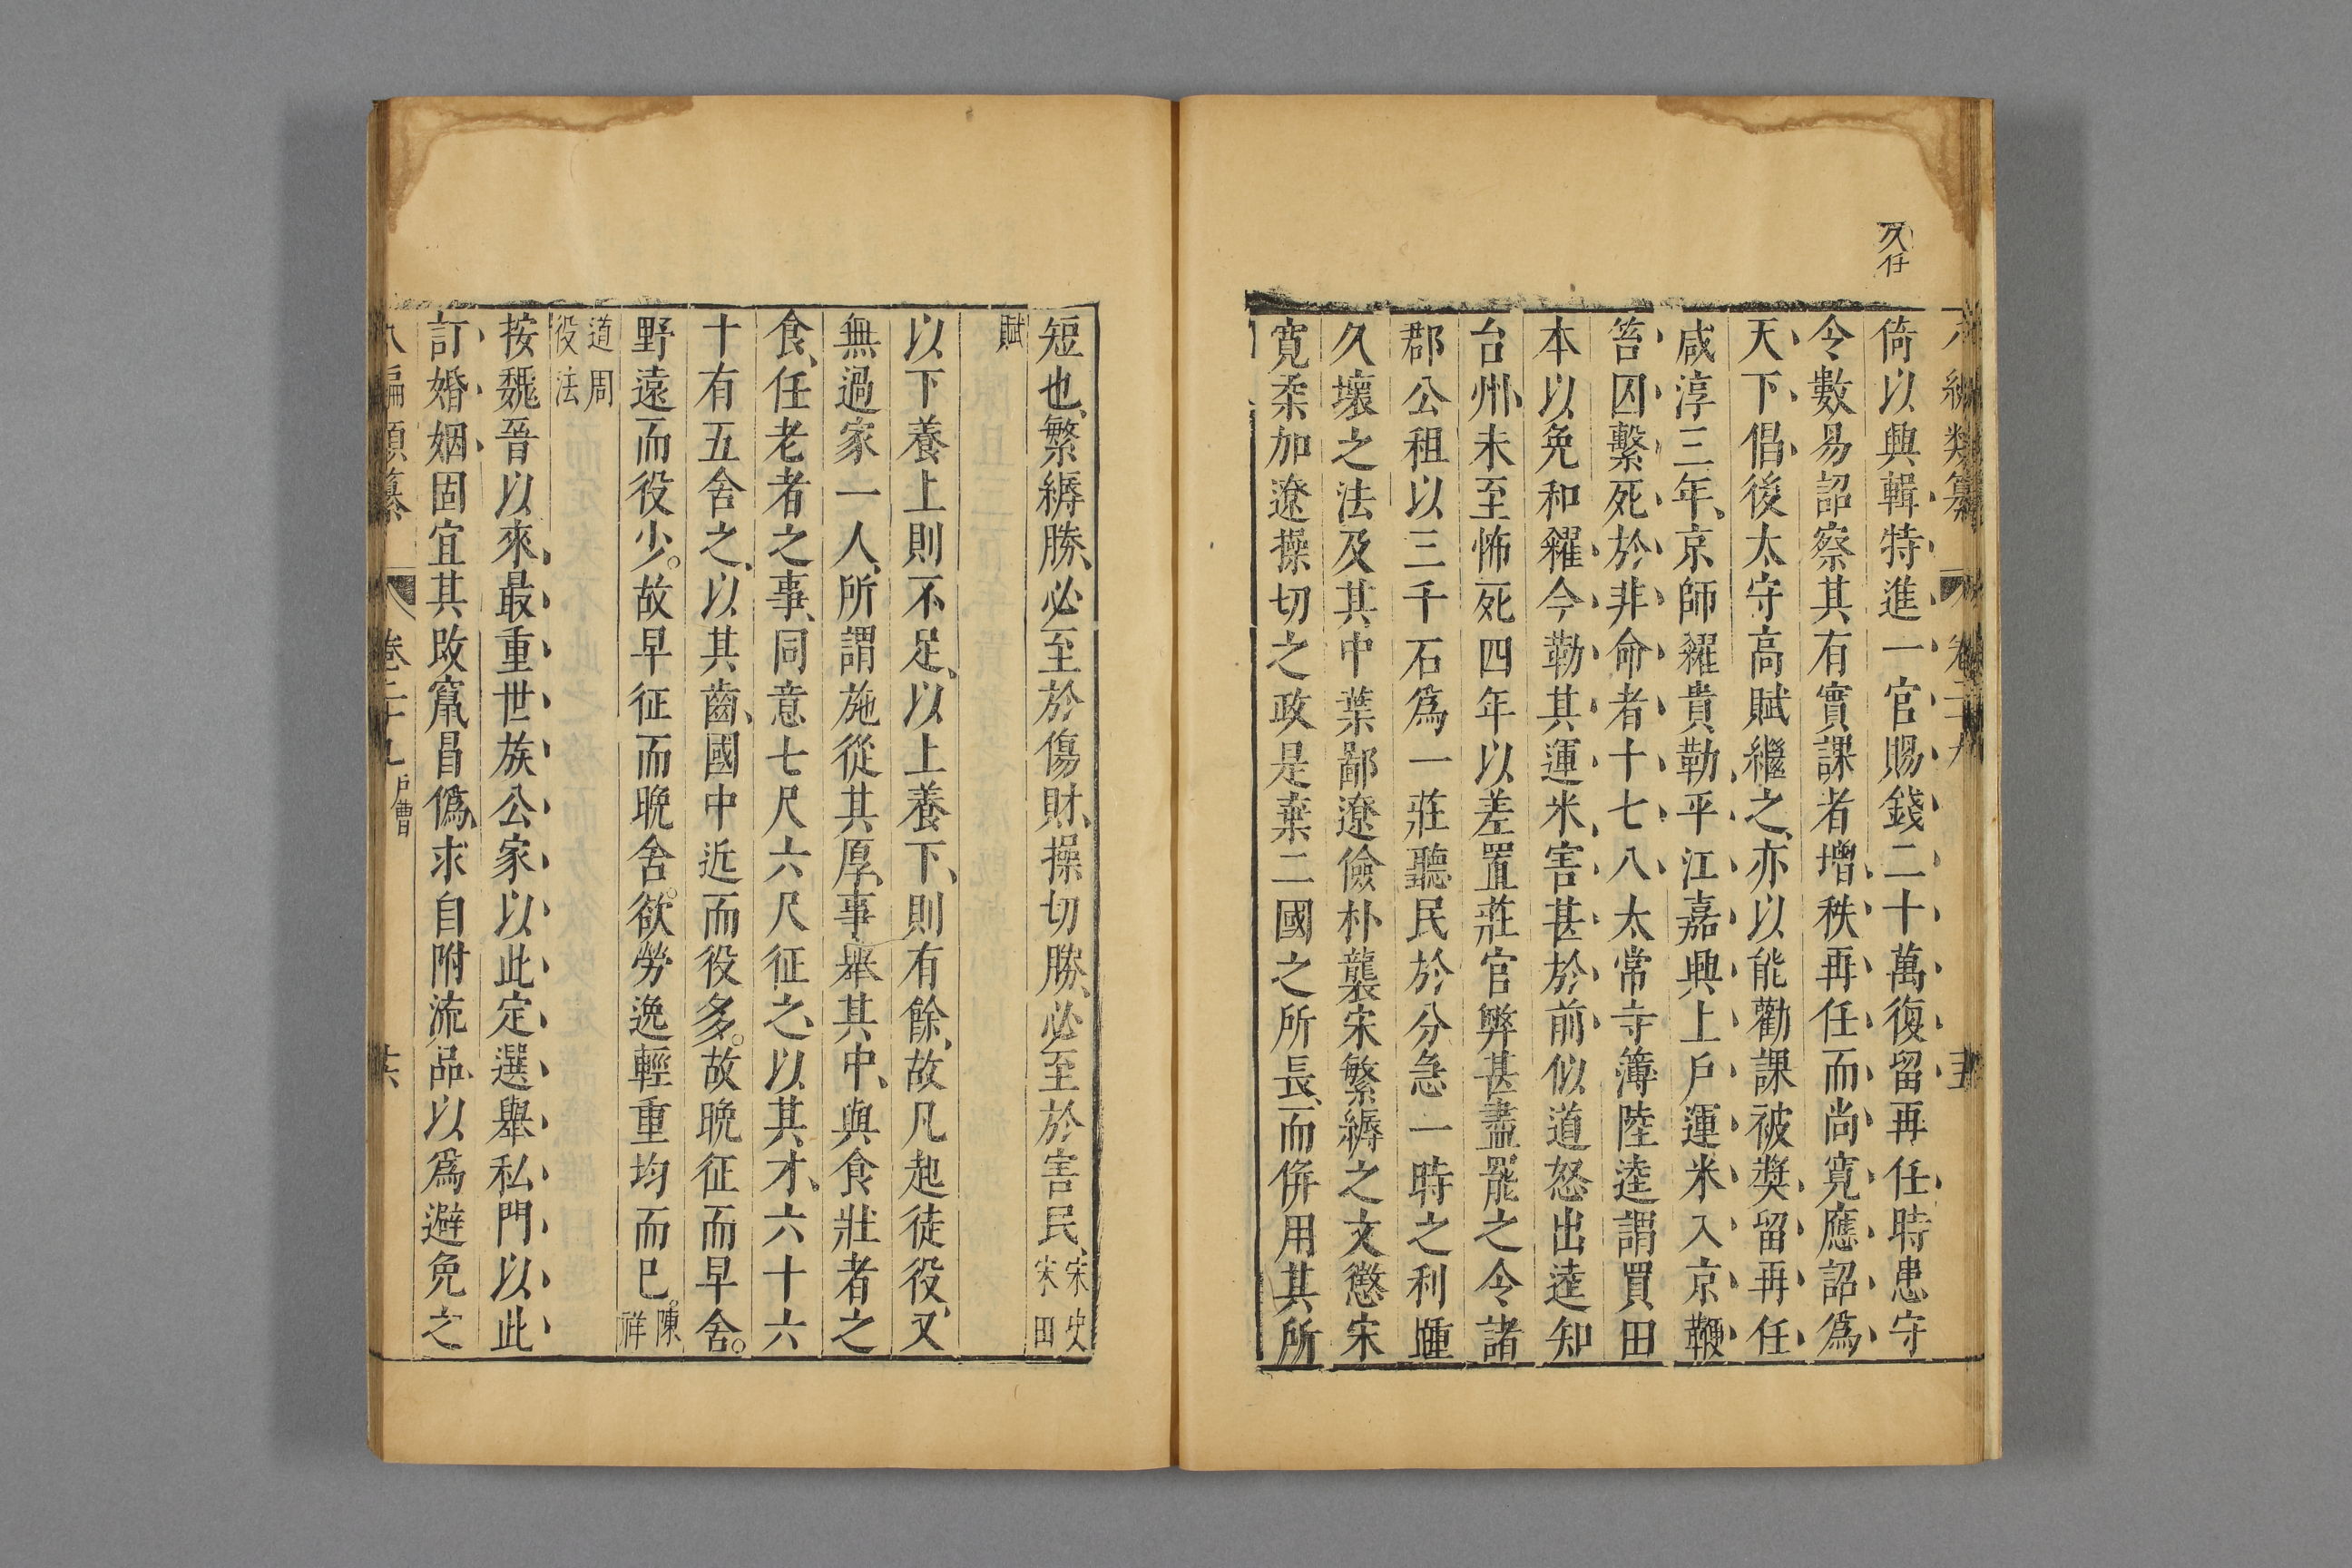 久任
八編類纂 卷二十九 五
倚以興輯特進一官賜錢二十萬復留再任時患守
令數易詔察其有實課者增秩再任而尚寬應詔爲
天下倡後太守高賦繼之亦以能勸課被奬留再任
咸淳三年京師糴貴勒平江嘉興上戶運米入京鞭
笞囚繫死於非命者十七八太常寺簿陸逵謂買田
本以免和糴今勒其運米害甚於前似道怒出逵知
台州未至怖死四年以差置莊官弊甚盡罷之令諸
郡公租以三千石爲一莊聽民於分急一時之利踵
久壞之法及其中葉鄙遼儉朴襲宋繁縟之文懲宋
寬柔加遼操切之政是棄二國之所長而併用其所
短也繁縟勝必至於傷財操切勝必至於害民宋史宋田
賦
以下養上則不足以上養下則有餘故凡起徒役又
無過家一人所謂施從其厚事舉其中與食壯者之
食任老者之事同意七尺六尺征之以其才六十六
十有五舍之以其齒國中近而役多故晚征而早舍
野遠而役少故早征而晚舍欲勞逸輕重均而巳陳祥
道周役法
按魏晉以來最重世族公家以此定選舉私門以此
訂婚姻固宜其改竄昌僞求自附流品以爲避免之
八編類纂 卷二十九 戶曹 六